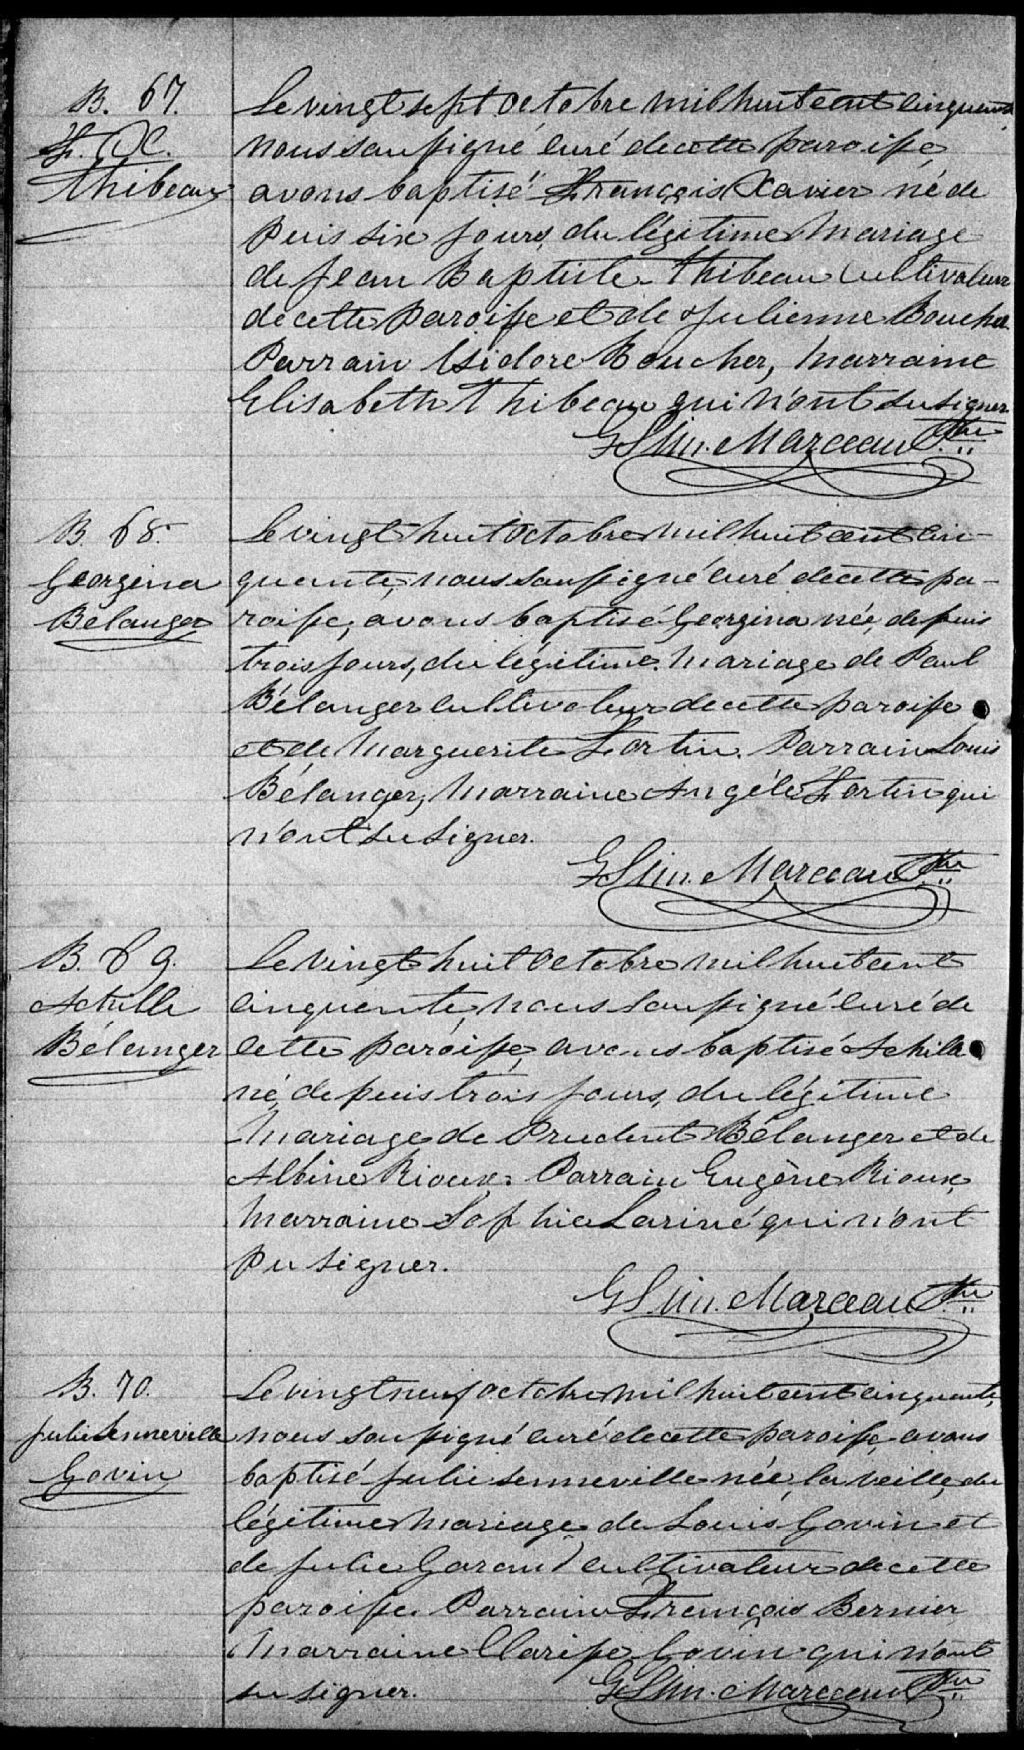 B. 67.
F. X.
Thibeau
Le vingt sept octobre mil huit cent cinquante
nous soussigné curé de cette paroisse
avons baptisé François Xavier né de
puis six jours, du légitime mariage
de Jean Baptiste Thibeau cultivateur
de cette paroisse et de Julienne Boucher
Parrain Isidore Boucher, marraine
Elisabeth Thibeau qui n'ont su signer
Marceau Ptre
B. 68.
Georgina
Bélanger
Le vingt huit octobre mil huit cent cin-
quante, nous soussigné curé de cette pa-
roisse, avons baptisé Georgina née, depuis
trois jours, du légitime mariage de Paul
Bélanger cultivateur de cette paroisse
et de Marguerite Fortin. Parrain Louis
Bélanger, marraine Angéle Fortin qui
n'ont su signer.
Marceau Ptre
B. 69.
Achille
Bélanger
Le vingt huit octobre mil huit cent
cinquante, nous soussigné curé de
cette paroisse, avons baptisé Achille
né, depuis trois jours, du légitime
mariage de Prudent Bélanger et de
Albine Rioux. Parrain Eugène Rioux,
marraine Sophie Larivé qui n'ont
pu signer.
Marceau Ptre
B. 70.
Julie Senneville
Govin
Le vingt neuf octobre mil huit cent cinquante,
nous soussigné curé de cette paroisse avons
baptisé Julie Senneville née, la veille, du
légitime mariage de Louis Govin et
de Julie Garant cultivateur de cette
paroisse. Parrain François Bernier
marraine Clarisse Govin qui n'ont
su signer.
Marceau Ptre